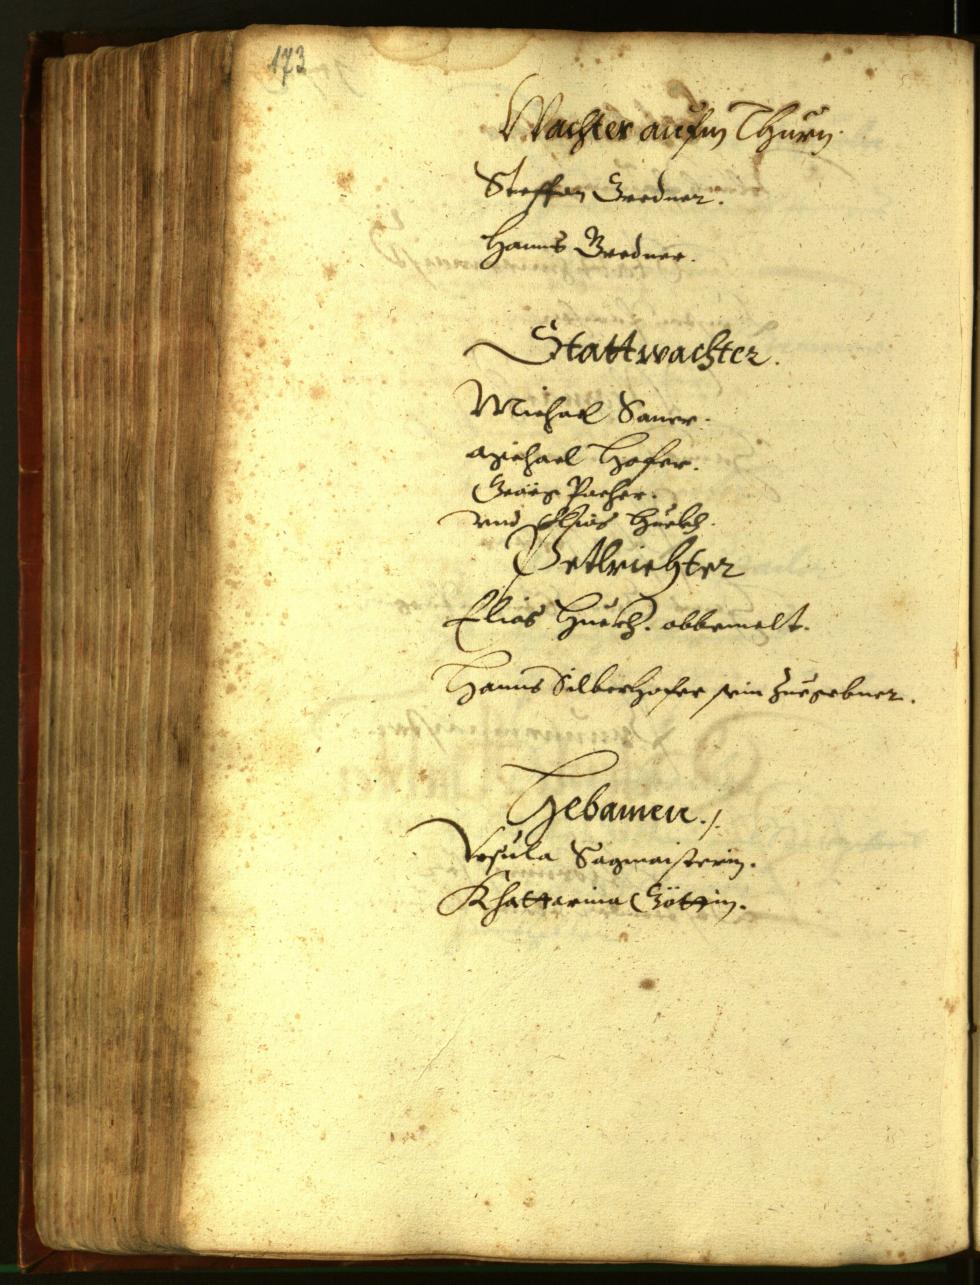 173
Wachter aufm Thurn.
Steffan Gredner.
Hanns Gredner.
Stattwachter.
Michael Saurr.
Michael Hofer.
Georg Pacher.
vnd Elias Huebh.
Petlrichter
Elias Huebh. obbemelt.
Hanns Silberhofer sein Zuegebner.
Hebamen ./.
Vrsula Sagmaisterin.
Khattarina Göttin.